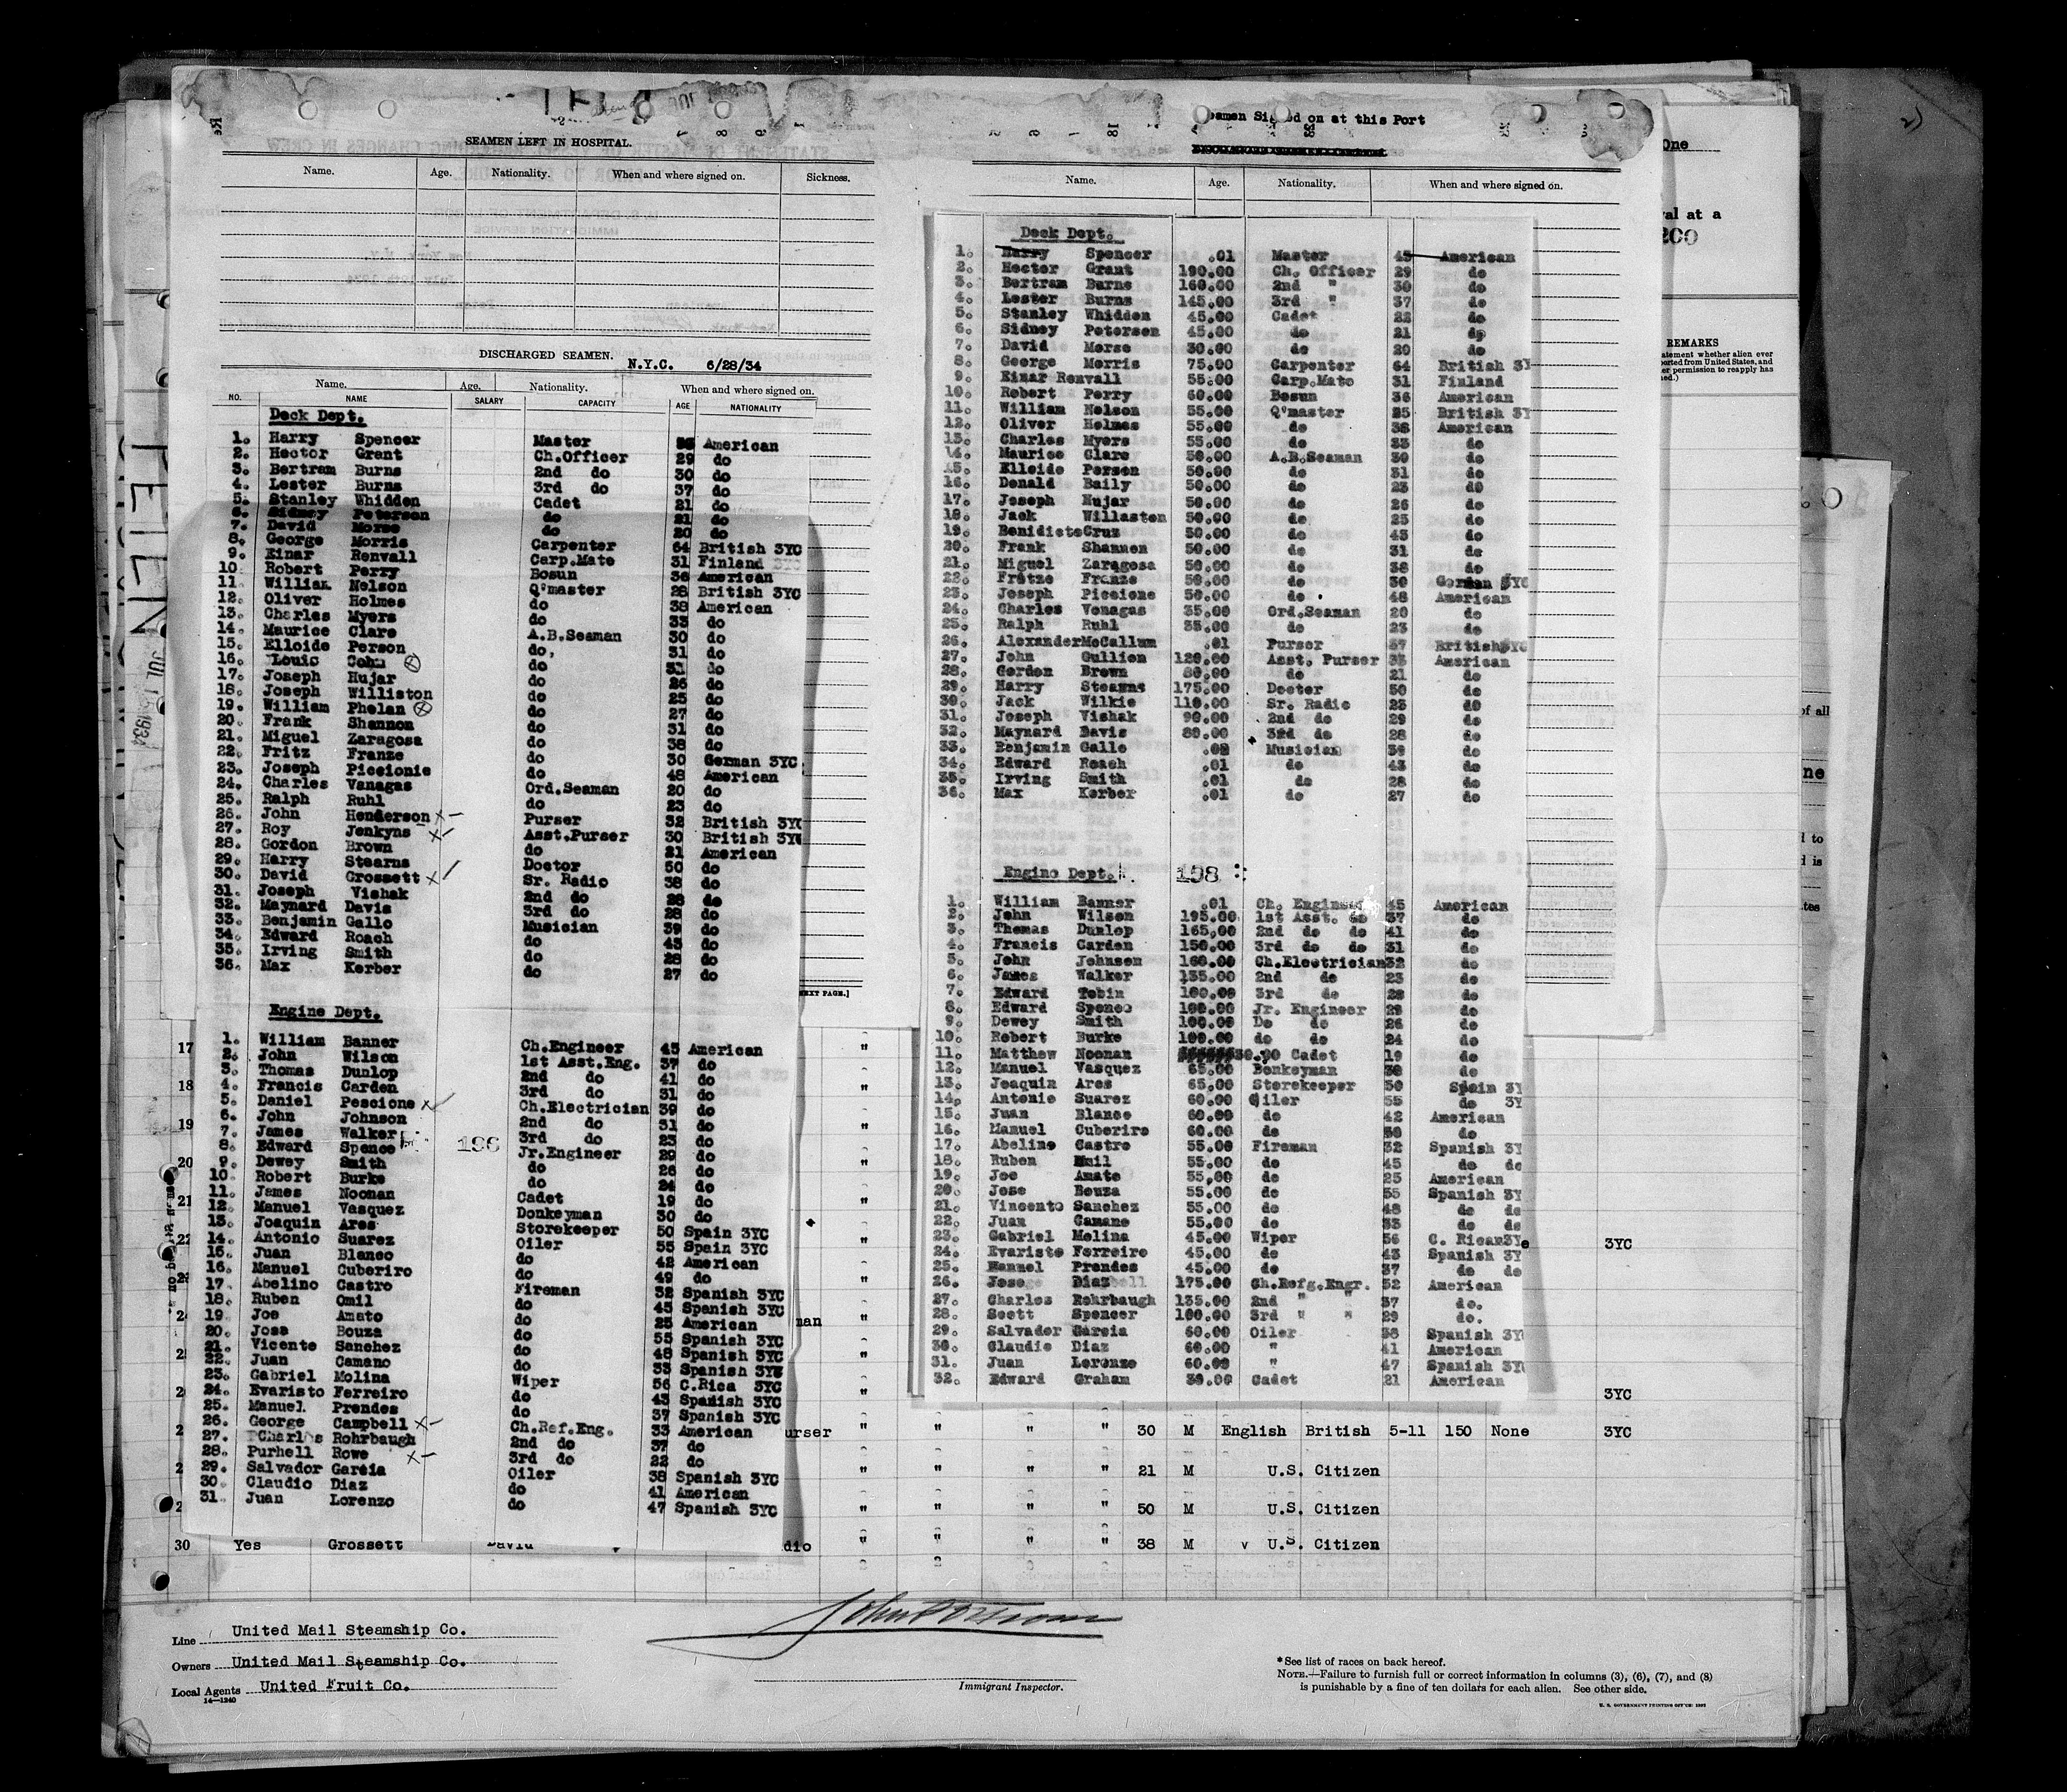 SEAMEN LEFT IN HOSPITAL.
Name. Age. Nationality. When and where signed on. Sickness.
DISCHARGED SEAMEN. N.Y.C. 6/28/34
Name. Age. Nationality. When and where signed on.
NO. NAME SALARY CAPACITY AGE NATIONALITY
Deck Dept.
1. Harry Spencer Master American
2. Hector Grant Ch.Officer 29 do
3. Bertram Burns 2nd do 30 do
4. Lester Burns 3rd do 37 do
5. Stanley Whidden Cadet 21 do
6. Sidney Peterson do 21 do
7. David Morse do 20 do
8. George Morris Carpenter 64 British 3YC
9. Einar Renvall Carp.Mate 31 Finland 3YC
10. Robert Perry Bosun 36 American
11. William Nelson Q'master 28 British 3YC
12. Oliver Holmes do 38 American
13. Charles Myers do 33 do
14. Maurice Clare A.B.Seaman 30 do
15. Elloide Person do, 31 do
16. Louis Cohn do 31 do
17. Joseph Hujar do 26 do
18. Joseph Williston do 25 do
19. William Phelan do 27 do
20. Frank Shannon do 31 do
21. Miguel Zaragosa do 38 do
22. Fritz Franze do 30 German 3YC
23. Joseph Piccionie do 48 American
24. Charles Vanagas Ord.Seaman 20 do
25. Ralph Ruhl do 23 do
26. John Henderson x- Purser 32 British 3YC
27. Roy Jenkyns x- Asst.Purser 30 British 3YC
28. Gordon Brown do 21 American
29. Harry Stearns Doctor 50 do
30. David Grossett x Sr. Radio 38 do
31. Joseph Vishak 2nd do 28 do
32. Maynard Davis 3rd do 28 do
33. Benjamin Gallo Musician 39 do
34. Edward Roach do 43 do
35. Irving Smith do 28 do
36. Max Kerber do 27 do
EXT PAGE.]
Engine Dept.
1. William Banner Ch.Engineer 45 American
2. John Wilson 1st Asst.Eng. 37 do
3. Thomas Dunlop 2nd do 41 do
4. Francis Carden 3rd do 31 do
5. Daniel Pescione x Ch.Electrician 39 do
6. John Johnson 2nd do 31 do
7. James Walker 3rd do 23 do
196
8. Edward Spence Jr.Engineer 29 do
9. Dewey Smith do 26 do
10. Robert Burke do 24 do
11. James Noonan Cadet 19 do
12. Manuel Vasquez Donkeyman 30 do
13. Joaquin Ares Storekeeper 50 Spain 3YC
14. Antonio Suarez Oiler 55 Spain 3YC
15. Juan Blanco do 42 American
16. Manuel Cuberiro do 49 do
17. Abelino Castro Fireman 32 Spanish 3YC
18. Ruben Omil do 45 Spanish 3YC
19. Joe Amato do 25 American
20. Jose Bouza do 55 Spanish 3YC
21. Vicente Sanchez do 48 Spanish 3YC
22. Juan Camano do 33 Spanish 3YC
23. Gabriel Molina Wiper 56 C.Rica 3YC
24. Evaristo Ferreiro do 43 Spanish 3YC
25. Manuel Prendes do 37 Spanish 3YC
26. George Campbell x- Ch.Ref.Eng. 33 American
27. Charles Rohrbaugh 2nd do 37 do
28. Purhell Rowe x- 3rd do 22 do
29. Salvador Garcia Oiler 38 Spanish 3YC
30. Claudio Diaz do 41 American
31. Juan Lorenzo do 47 Spanish 3YC
Seamen Signed on at this Port
Name. Age. Nationality. When and where signed on.
Deck Dept.
1. Harry Spencer .01 Master 45 American
2. Hector Grant 190.00 Ch. Officer 29 do
3. Bertram Burns 160.00 2nd " 30 do
4. Lester Burns 145.00 3rd " 37 do
5. Stanley Whidden 45.00 Cadet 22 do
6. Sidney Petersen 45.00 do 21 do
7. David Morse 30.00 do 20 do
8. George Morris 75.00 Carpenter 64 British 3Y
9. Einar Renvall 55.00 Carp.Mate 31 Finland
10. Robert Perry 60.00 Bosun 36 American
11. William Nelson 55.00 Q'master 25 British 3Y
12. Oliver Holmes 55.00 do 38 American
13. Charles Myers 55.00 do 33 do
14. Maurice Clare 50.00 A.B.Seaman 30 do
15. Elloide Person 50.00 do 31 do
16. Donald Baily 50.00 do 23 do
17. Joseph Hujar 50.00 do 26 do
18. Jack Willaston 50.00 do 25 do
19. BenidicteCruz 50.00 do 43 do
20. Frank Shannon 50.00 do 31 do
21. Miguel Zaragosa 50.00 do 38 do
22. Fratze Franze 50.00 do 30 German 3YC
23. Joseph Piccione 50.00 do 48 American
24. Charles Venagas 35.00 Ord.Seaman 20 do
25. Ralph Ruhl 35.00 do 23 do
26. AlexanderMcCallum .01 Purser 37 British3YC
27. John Gullien 120.00 Asst. Purser 33 American
28. Gordon Brown 80.00 do 21 do
29. Harry Steanns 175.00 Doctor 50 do
30. Jack Wilkie 110.00 Sr. Radio 23 do
31. Joseph Vishak 90.00 2nd do 29 do
32. Maynard Davis 80.00 3rd do 28 do
33. Benjamin Gallo Musician 39 do
34. Edward Roach .01 do 43 do
35. Irving Smith .01 do 28 do
36. Max Kerber .01 do 27 do
Engine Dept. 198
1. William Banner .01 Ch. Engineer 45 American
2. John Wilson 195.00 1st Asst. do 37 do
3. Thomas Dunlop 165.00 2nd do do 41 do
4. Francis Carden 150.00 3rd do do 31 do
5. John Johnson 160.00 Ch.Electrician32 do
6. James Walker 135.00 2nd do 23 do
7. Edward Tobin 100.00 3rd do 28 do
8. Edward Spence 100.00 Jr. Engineer 29 do
9. Dewey Smith 100.00 Do do 26 do
10. Robert Burke 100.00 do do 24 do
11. Matthew Noonan 30.00 Cadet 19 do
12. Manuel Vasquez 65.00 Donkeyman 30 do
13. Joaquin Ares 65.00 Storekeeper 50 Spain 3Y
14. Antonio Suarez 60.00 Oiler 55 do 3Y
15. Juan Blanco 60.00 do 42 American
16. Manuel Cuberiro 60.00 do 50 do
17. Abeline Castro 55.00 Fireman 32 Spanish 3Y
18. Ruben Emil 55.00 do 45 do do
19. Joe Amato 55.00 do 25 American
20. Jose Bouza 55.00 do 55 Spanish 3Y
21. Vincento Sanchez 55.00 do 48 do do
22. Juan Camano 55.00 do 33 do do
23. Gabriel Molina 45.00 Wiper 56 C. Rican3Y
24. Evaristo Ferreiro 45.00 do 43 Spanish 3Y
25. Manuel Prendes 45.00 do 37 do do
26. Jose Diaz 175.00 Ch.Refg.Engr. 52 American
27. Charles Rohrbaugh 135.00 2nd " " 37 do.
28. Scott Spencer 100.00 3rd " " 29 do.
29. Salvador Garcia 60.00 Oiler 38 Spanish 3Y
30. Claudio Diaz 60.00 " 41 American
31. Juan Lorenzo 60.00 " 47 Spanish 3YC
32. Edward Graham 30.00 Cadet 21 American
One
val at a
200
REMARKS
atement whether alien ever
ported from United States, and
er permission to reapply has
ned.)
of all
ne
d to
d is
tes
JUL 15 1934
17 "
18 "
19 "
20 "
21 "
22 3YC
man "
" 3YC
urser " " " 30 M English British 5-11 150 None 3YC
" " " 21 M U.S. Citizen
" " " 50 M U.S. Citizen
30 Yes Grossett David dio " " " 38 M v U.S. Citizen
Line United Mail Steamship Co.
Owners United Mail Steamship Co.
Local Agents United Fruit Co.
14—1240
Immigrant Inspector.
*See list of races on back hereof.
NOTE.—Failure to furnish full or correct information in columns (3), (6), (7), and (8)
is punishable by a fine of ten dollars for each alien. See other side.
U. S. GOVERNMENT PRINTING OFFICE: 1932